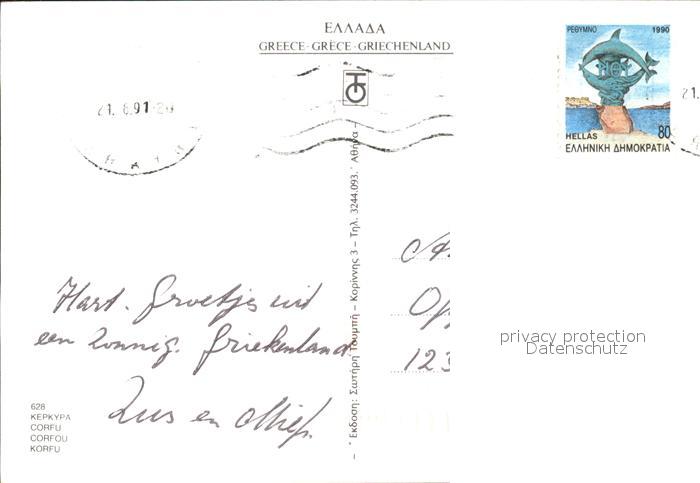 ΕΛΛΑΔΑ
GREECE - GRÈCE - GRIECHENLAND
ΡΕΘΥΜΝΟ 1990
HELLAS 80
ΕΛΛΗΝΙΚΗ ΔΗΜΟΚΡΑΤΙΑ
21. 8.91-20
21.
Εκδοση: Σωτήρη Τουμπή – Κορίννης 3 – Τηλ. 3244.093. Αθήνα –
Hart. Groetjes uit
een zonnig. Griekenland.
Zus en Miep.
123
privacy protection
Datenschutz
628
ΚΕΡΚΥΡΑ
CORFU
CORFOU
KORFU